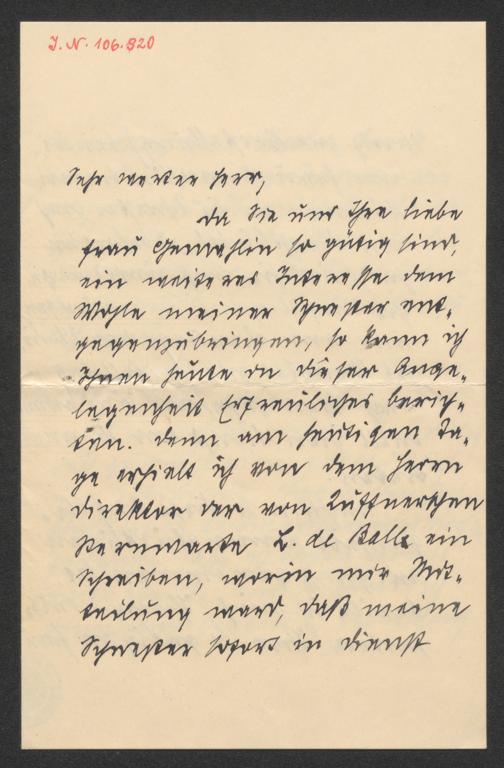 J. N. 106.920
Sehr werter Herr,
da Sie und Ihre liebe
Frau Gemahlin so gütig sind,
ein weiteres Interesse dem
Wohle meiner Schwester ent-
gegenzubringen, so kann ich
Ihnen heute in dieser Ange-
legenheit Erfreuliches berich-
ten. Denn am heutigen Ta-
ge erhielt ich von dem Herrn
Direktor der von Kuffnerschen
Sternwarte L. de Ball ein
Schreiben, worin mir Mit-
teilung ward, daß meine
Schwester sofort in Dienst